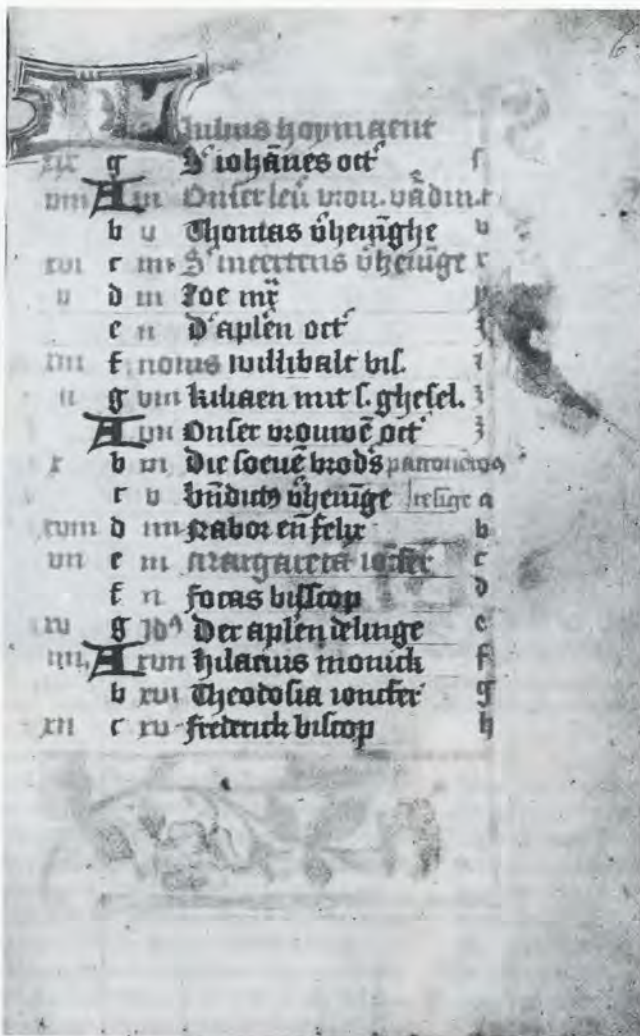 6
Julius hoymaent
xix g S' iohānes oct' s
viii A vi Onser leū vrou. vādin. t
b v Thomas v̄heuīghe v
xvi c iiii S' meertens v̄heuīge x
v d iii Zoe mr̄ y
e ii D' aplēn oct' z
xiii f nonas willibalt bis. z
ii g viii kiliaen mit s. ghesel. z
A vii Onser vrouwē oct' z
x b vi Die soeuē brod's
c v bn̄dictꝰ v̄heuīge a
xviii d iiii Nabor eñ felix b
vii e iii Margareta ioncfer c
f ii focas bisscop d
xv g idꝰ Der aplēn delinge e
iiii A xvii hilarius monick f
b xvi Theodosia ioncfer g
xii c xv frederick biscop h